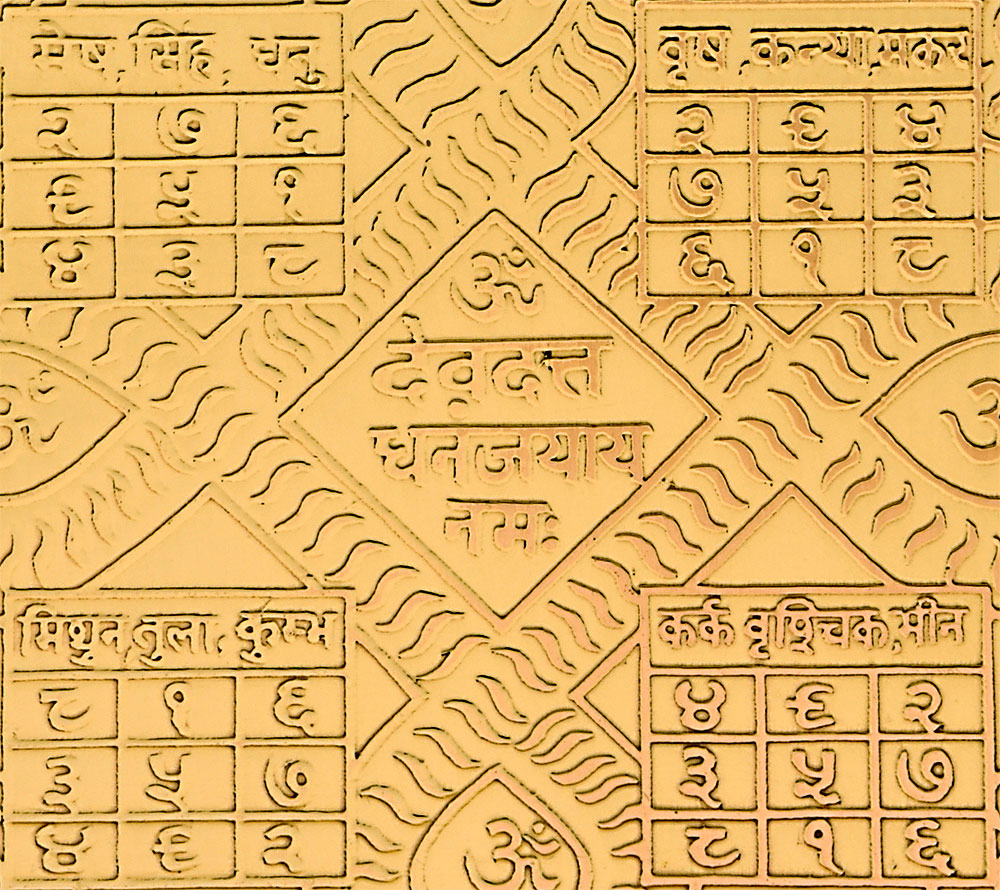 मेष, सिंह, धनु
२ ७ ६
९ ५ १
४ ३ ८
वृष, कन्या, मकर
२ ९ ४
७ ५ ३
६ १ ८
ॐ
देवदत्त
धनजयाय
नमः
ॐ
मिथुन, तुला, कुम्भ
८ १ ६
३ ५ ७
४ ९ २
कर्क वृश्चिक, मीन
४ ९ २
३ ५ ७
८ १ ६
ॐ